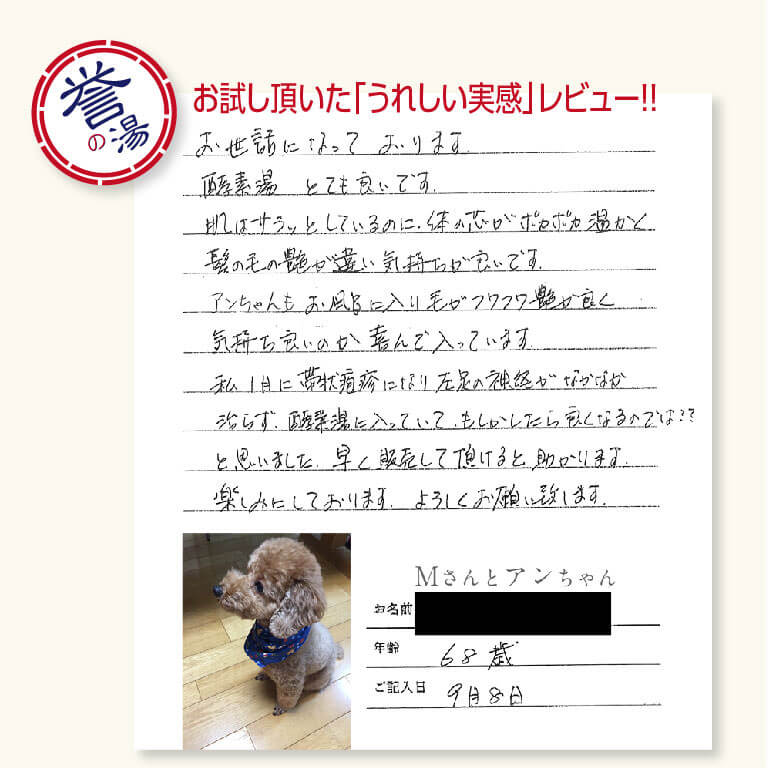 誉の湯
お試し頂いた「うれしい実感」レビュー!!
お世話になって おります.
酵素湯 とても良いです.
肌はサラッとしているのに、体の芯がポカポカ温かく
髪の毛の艶が違い気持ちが良いです.
アンちゃんも お風呂に入り毛がフワフワ艶が良く
気持ち良いのか 喜んで入っています
私 1月に帯状疱疹になり左足の神経がなかなか
治らず、酵素湯に入っていて、もしかしたら良くなるのでは??
と思いました. 早く販売して頂けると助かります.
楽しみにしております. よろしくお願い致します.
Mさんとアンちゃん
お名前
年齢 68歳
ご記入日 9月8日